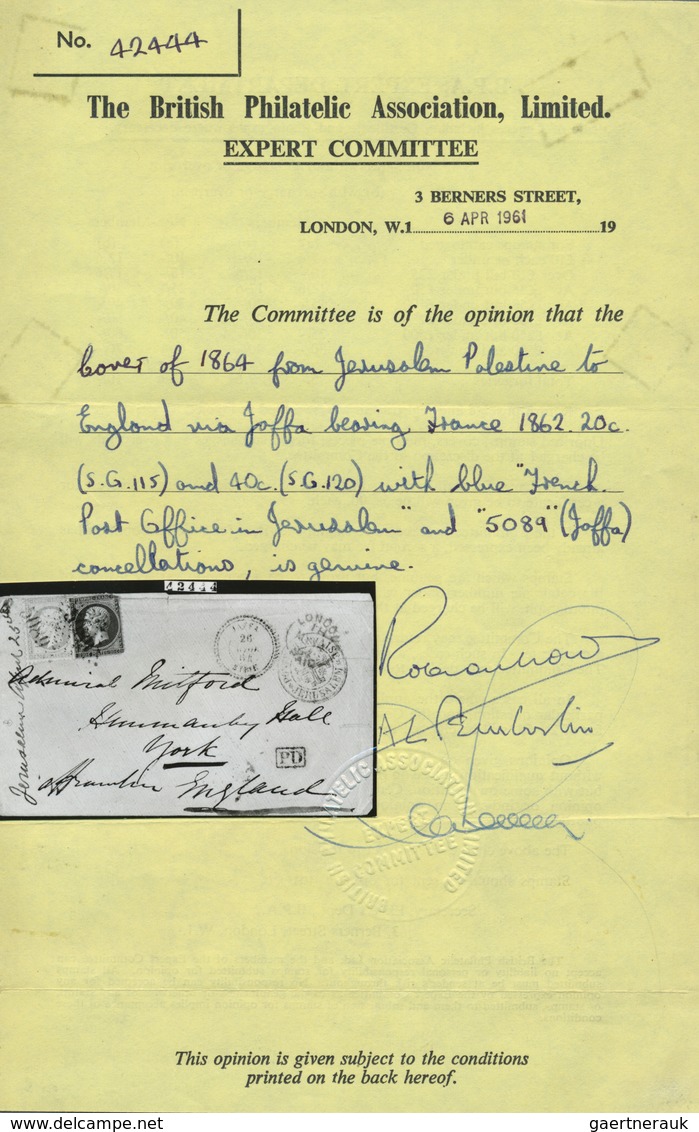 No. 42444
The British Philatelic Association, Limited.
EXPERT COMMITTEE
3 BERNERS STREET,
LONDON, W.1 6 APR 1961 19
The Committee is of the opinion that the
cover of 1864 from Jerusalem Palestine to
England via Jaffa bearing France 1862. 20c.
(S.G.115) and 40c. (S.G.120) with blue "French
Post Office in Jerusalem" and "5089" (Jaffa)
cancellations, is genuine.
42444
LONDON
26
JERUSALEM
Admiral Mitford
Hunmanby Hall
York
PD
England
BRITISH PHILATELIC ASSOCIATION LIMITED
EXPERT
COMMITTEE
This opinion is given subject to the conditions
printed on the back hereof.
gaertnerauk